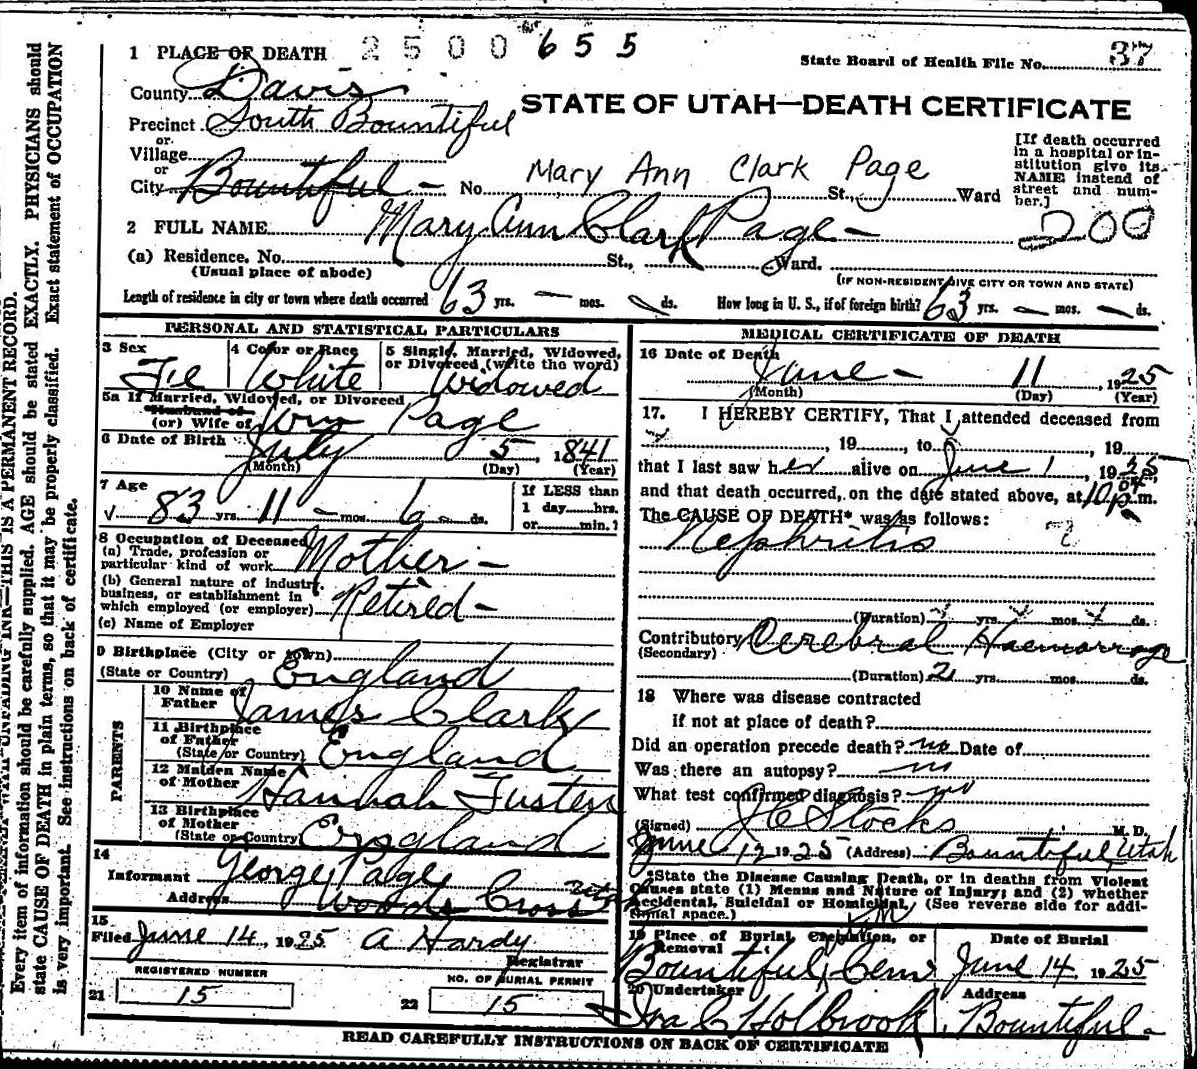 1 PLACE OF DEATH 2500 655
State Board of Health File No. 37
County Davis
STATE OF UTAH—DEATH CERTIFICATE
Precinct South Bountiful
or
Village
or
City Bountiful - No. Mary Ann Clark Page St., Ward
[If death occurred in a hospital or in-
stitution give its
NAME instead of
street and num-
ber.]
200
2 FULL NAME Mary Ann Clark Page -
(a) Residence. No. St., Ward.
(Usual place of abode)
(IF NON-RESIDENT GIVE CITY OR TOWN AND STATE)
Length of residence in city or town where death occurred 63 yrs. — mos. ds. How long in U. S., if of foreign birth? 63 yrs. — mos. — ds.
PERSONAL AND STATISTICAL PARTICULARS
3 Sex
Fe
4 Color or Race
White
5 Single, Married, Widowed,
or Divorced (write the word)
Widowed
5a If Married, Widowed, or Divorced
Husband of
(or) Wife of Wm Page
6 Date of Birth July 5, 1841
(Month) (Day) (Year)
7 Age
83 yrs. 11 - mos. 6 ds.
If LESS than
1 day hrs.
or min.?
8 Occupation of Deceased
(a) Trade, profession or
particular kind of work Mother -
(b) General nature of industry,
business, or establishment in
which employed (or employer) Retired -
(c) Name of Employer
9 Birthplace (City or town)
(State or Country) England
PARENTS
10 Name of
Father James Clark
11 Birthplace
of Father
(State or Country) England
12 Maiden Name
of Mother Hannah
13 Birthplace
of Mother
(State or Country) England
14
Informant George Page
Address Woods Cross
15
Filed June 14, 1925 A Hardy
Registrar
REGISTERED NUMBER
21 15
NO. OF BURIAL PERMIT
22 15
MEDICAL CERTIFICATE OF DEATH
16 Date of Death
June - 11, 1925
(Month) (Day) (Year)
17. I HEREBY CERTIFY, That I attended deceased from
, 19 , to , 19
that I last saw her alive on June 1, 1925
and that death occurred, on the date stated above, at 10 p.m.
The CAUSE OF DEATH* was as follows:
Nephritis ?
(Duration) yrs. mos. ds.
Contributory Cerebral Haemorrage
(Secondary)
(Duration) 2 yrs. mos. ds.
18 Where was disease contracted
If not at place of death?
Did an operation precede death? no Date of
Was there an autopsy? no
What test confirmed diagnosis? no
(Signed) J C Stocks M. D.
June 12 1925 (Address) Bountiful, Utah
*State the Disease Causing Death, or in deaths from Violent
Causes state (1) Means and Nature of Injury; and (2) whether
Accidental, Suicidal or Homicidal. (See reverse side for addi-
tional space.)
19 Place of Burial, Cremation, or
Removal
Bountiful, Cem
Date of Burial
June 14 1925
20 Undertaker
Ira C Holbrook
Address
Bountiful -
READ CAREFULLY INSTRUCTIONS ON BACK OF CERTIFICATE
THIS IS A PERMANENT RECORD.
Every item of information should be carefully supplied. AGE should be stated EXACTLY. PHYSICIANS should
state CAUSE OF DEATH in plain terms, so that it may be properly classified. Exact statement of OCCUPATION
is very important. See instructions on back of certificate.